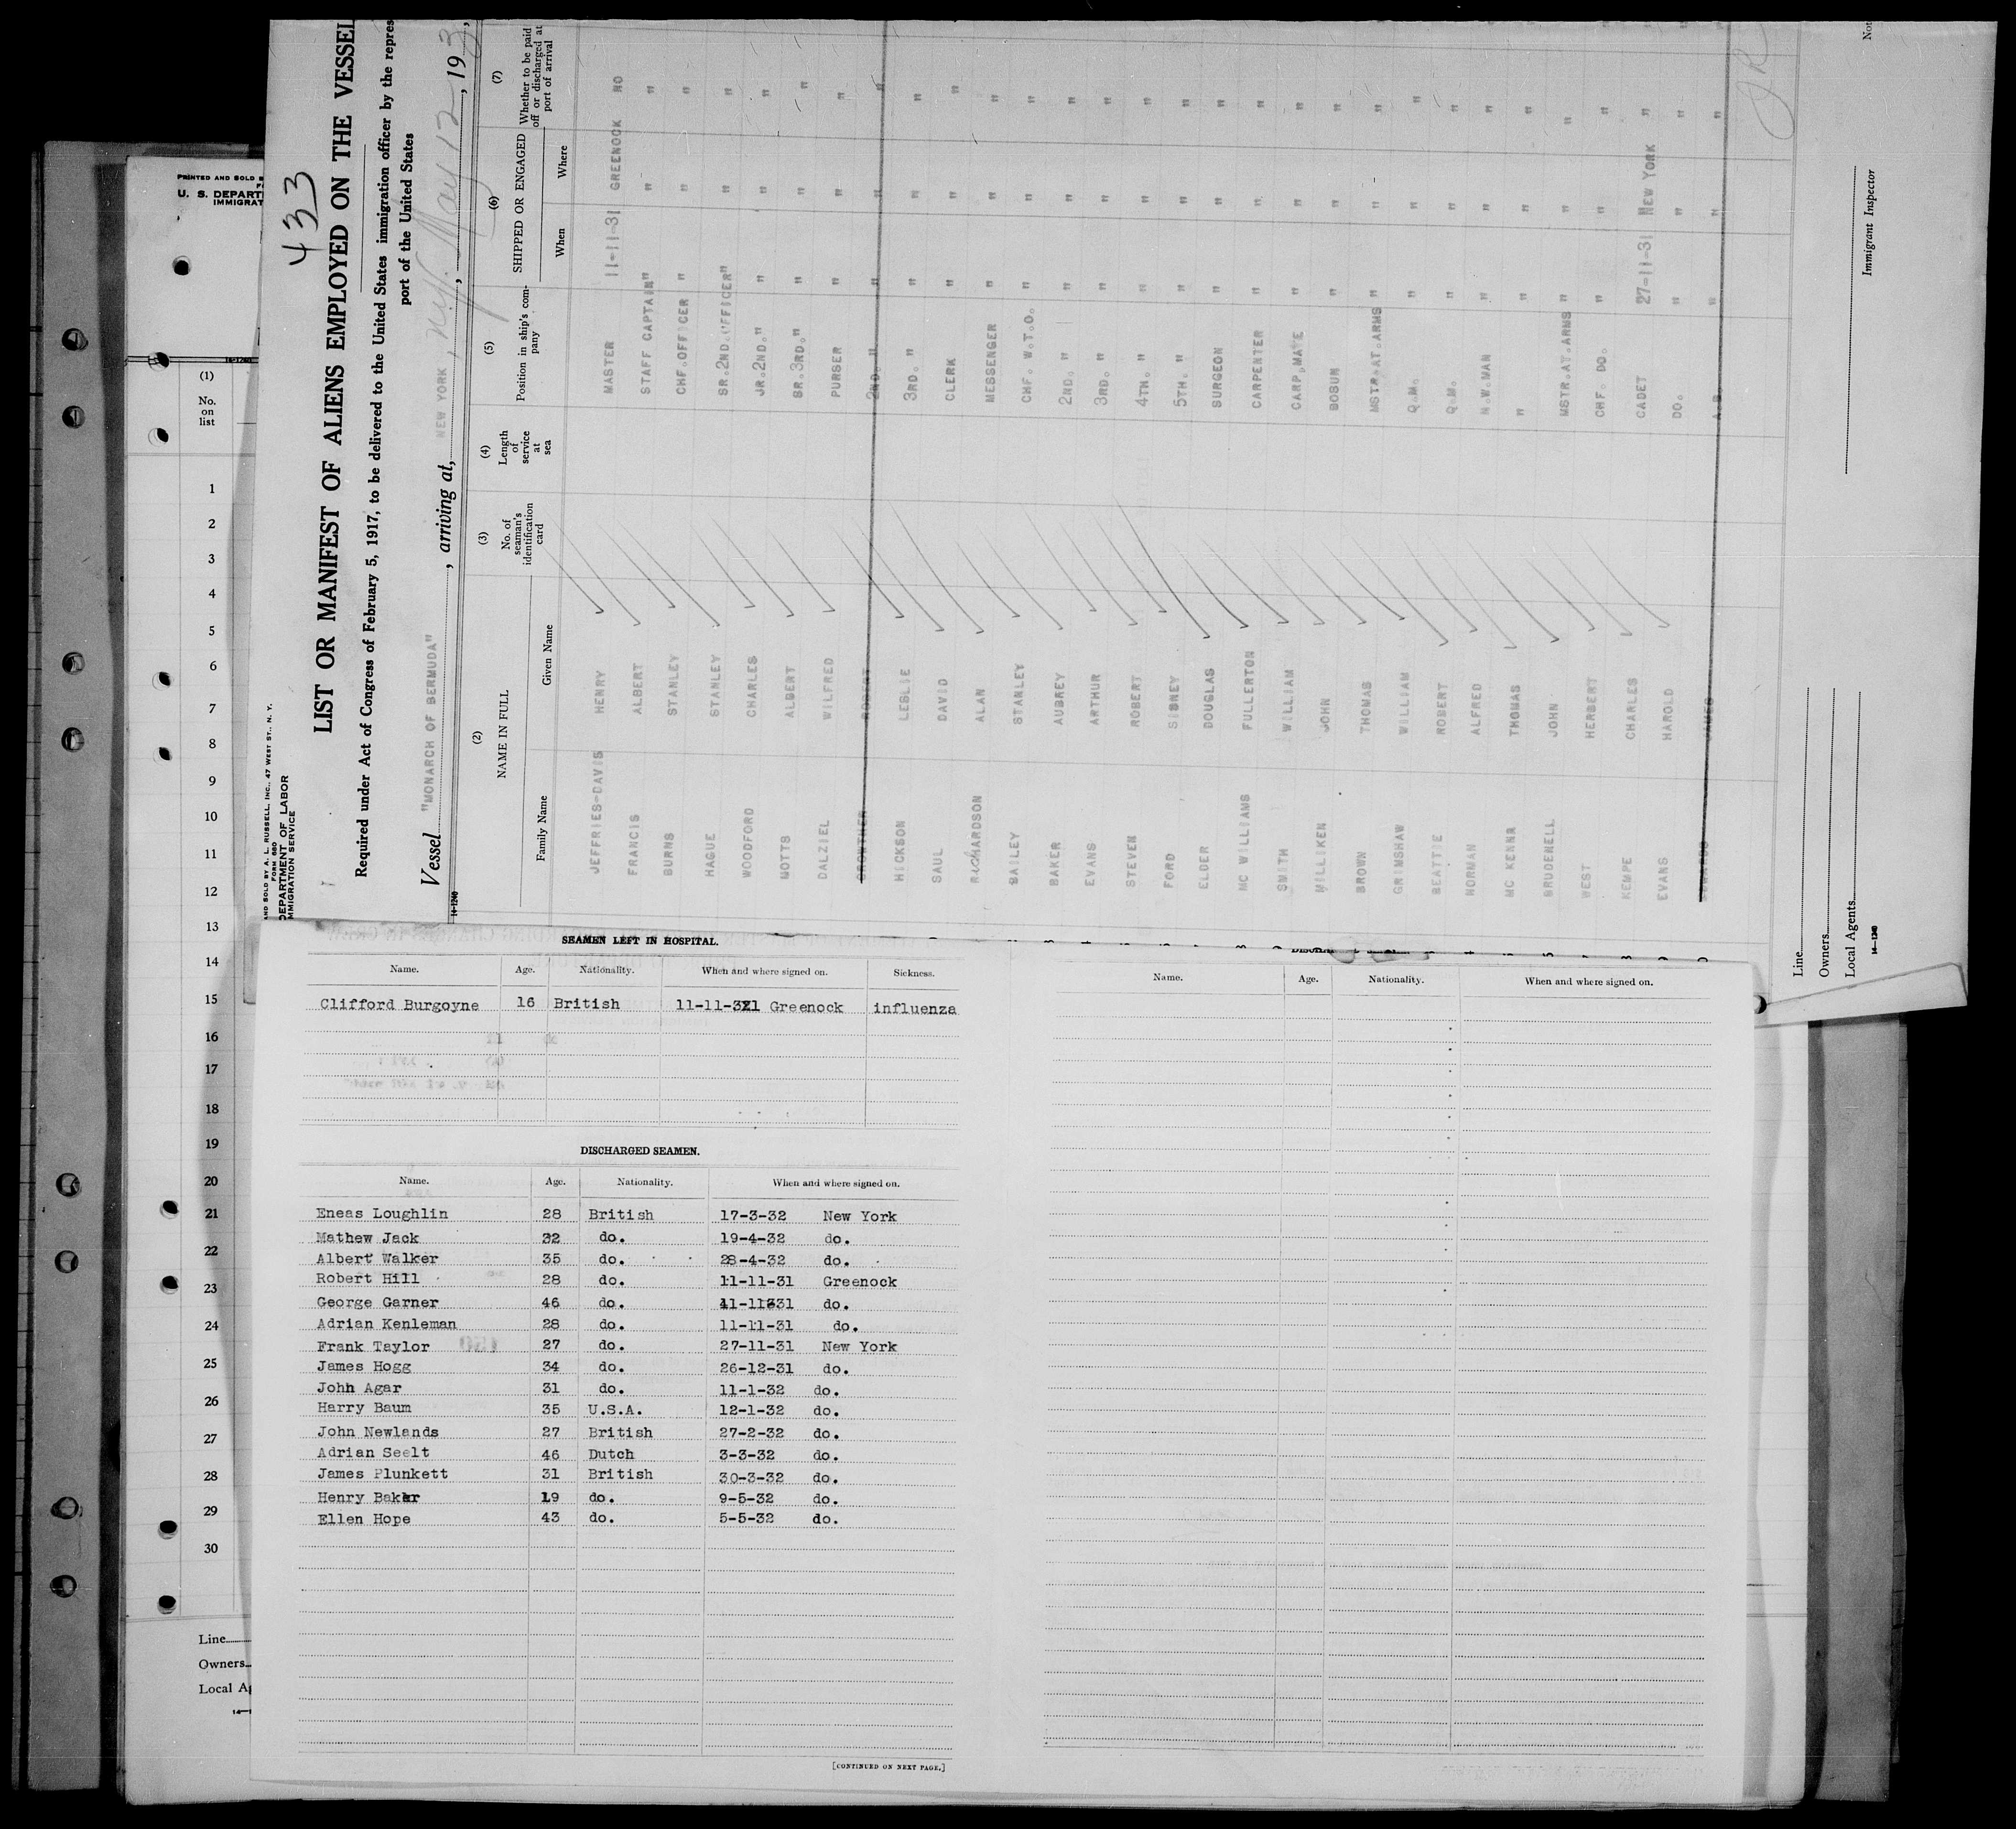 433
LIST OR MANIFEST OF ALIENS EMPLOYED ON THE VESSEL
Required under Act of Congress of February 5, 1917, to be delivered to the United States immigration officer by the repres
port of the United States
AND SOLD BY A. L. RUSSELL, INC., 47 WEST ST., N. Y.
FORM 680
DEPARTMENT OF LABOR
IMMIGRATION SERVICE
Vessel "MONARCH OF BERMUDA", arriving at, NEW YORK, N.Y. May 12, 193
14-1240
(2) (3) (4) (5) (6) (7)
NAME IN FULL No. of seaman's identification card Length of service at sea Position in ship's company SHIPPED OR ENGAGED Whether to be paid off or discharged at port of arrival
Family Name Given Name When Where
JEFFRIES-DAVIS HENRY MASTER 11-11-31 GREENOCK NO
FRANCIS ALBERT STAFF CAPTAIN " " "
BURNS STANLEY CHF.OFFICER " " "
HAGUE STANLEY SR.2ND.OFFICER " " "
WOODFORD CHARLES JR.2ND." " " "
MOTTS ALBERT SR.3RD." " " "
DALZIEL WILFRED PURSER " " "
CROWTHER ROBERT 2ND. " " " "
HICKSON LESLIE 3RD. " " " "
SAUL DAVID CLERK " " "
RICHARDSON ALAN MESSENGER " " "
BAILEY STANLEY CHF. W.T.O. " " "
BAKER AUBREY 2ND. " " " "
EVANS ARTHUR 3RD. " " " "
STEVEN ROBERT 4TH. " " " "
FORD SIDNEY 5TH. " " " "
ELDER DOUGLAS SURGEON " " "
MC WILLIAMS FULLERTON CARPENTER " " "
SMITH WILLIAM CARP.MATE " " "
MILLIKEN JOHN BOSUM " " "
BROWN THOMAS MSTR.AT.ARMS " " "
GRIMSHAW WILLIAM Q.M. " " "
BEATTIE ROBERT Q.M. " " "
NORMAN ALFRED N.W.MAN " " "
MC KENNA THOMAS " " " "
BRUDENELL JOHN MSTR.AT.ARMS " " "
WEST HERBERT CHF. DO. " " "
KEMPE CHARLES CADET 27-11-31 NEW YORK "
EVANS HAROLD DO. " " "
JAMES A.B. " " "
Line
Owners
Local Agents
14-1240
Immigrant Inspector
PRINTED AND SOLD B
U. S. DEPART
IMMIGRAT
14-1240
(1)
No.
on
list
1
2
3
4
5
6
7
8
9
10
11
12
13
14
15
16
17
18
19
20
21
22
23
24
25
26
27
28
29
30
Line
Owners
Local Ag
SEAMEN LEFT IN HOSPITAL.
Name. Age. Nationality. When and where signed on. Sickness.
Clifford Burgoyne 16 British 11-11-31 Greenock influenza
DISCHARGED SEAMEN.
Name. Age. Nationality. When and where signed on.
Eneas Loughlin 28 British 17-3-32 New York
Mathew Jack 32 do. 19-4-32 do.
Albert Walker 35 do. 28-4-32 do.
Robert Hill 28 do. 11-11-31 Greenock
George Garner 46 do. 11-11-31 do.
Adrian Kenleman 28 do. 11-11-31 do.
Frank Taylor 27 do. 27-11-31 New York
James Hogg 34 do. 26-12-31 do.
John Agar 31 do. 11-1-32 do.
Harry Baum 35 U.S.A. 12-1-32 do.
John Newlands 27 British 27-2-32 do.
Adrian Seelt 46 Dutch 3-3-32 do.
James Plunkett 31 British 30-3-32 do.
Henry Baker 19 do. 9-5-32 do.
Ellen Hope 43 do. 5-5-32 do.
[CONTINUED ON NEXT PAGE.]
Name. Age. Nationality. When and where signed on.